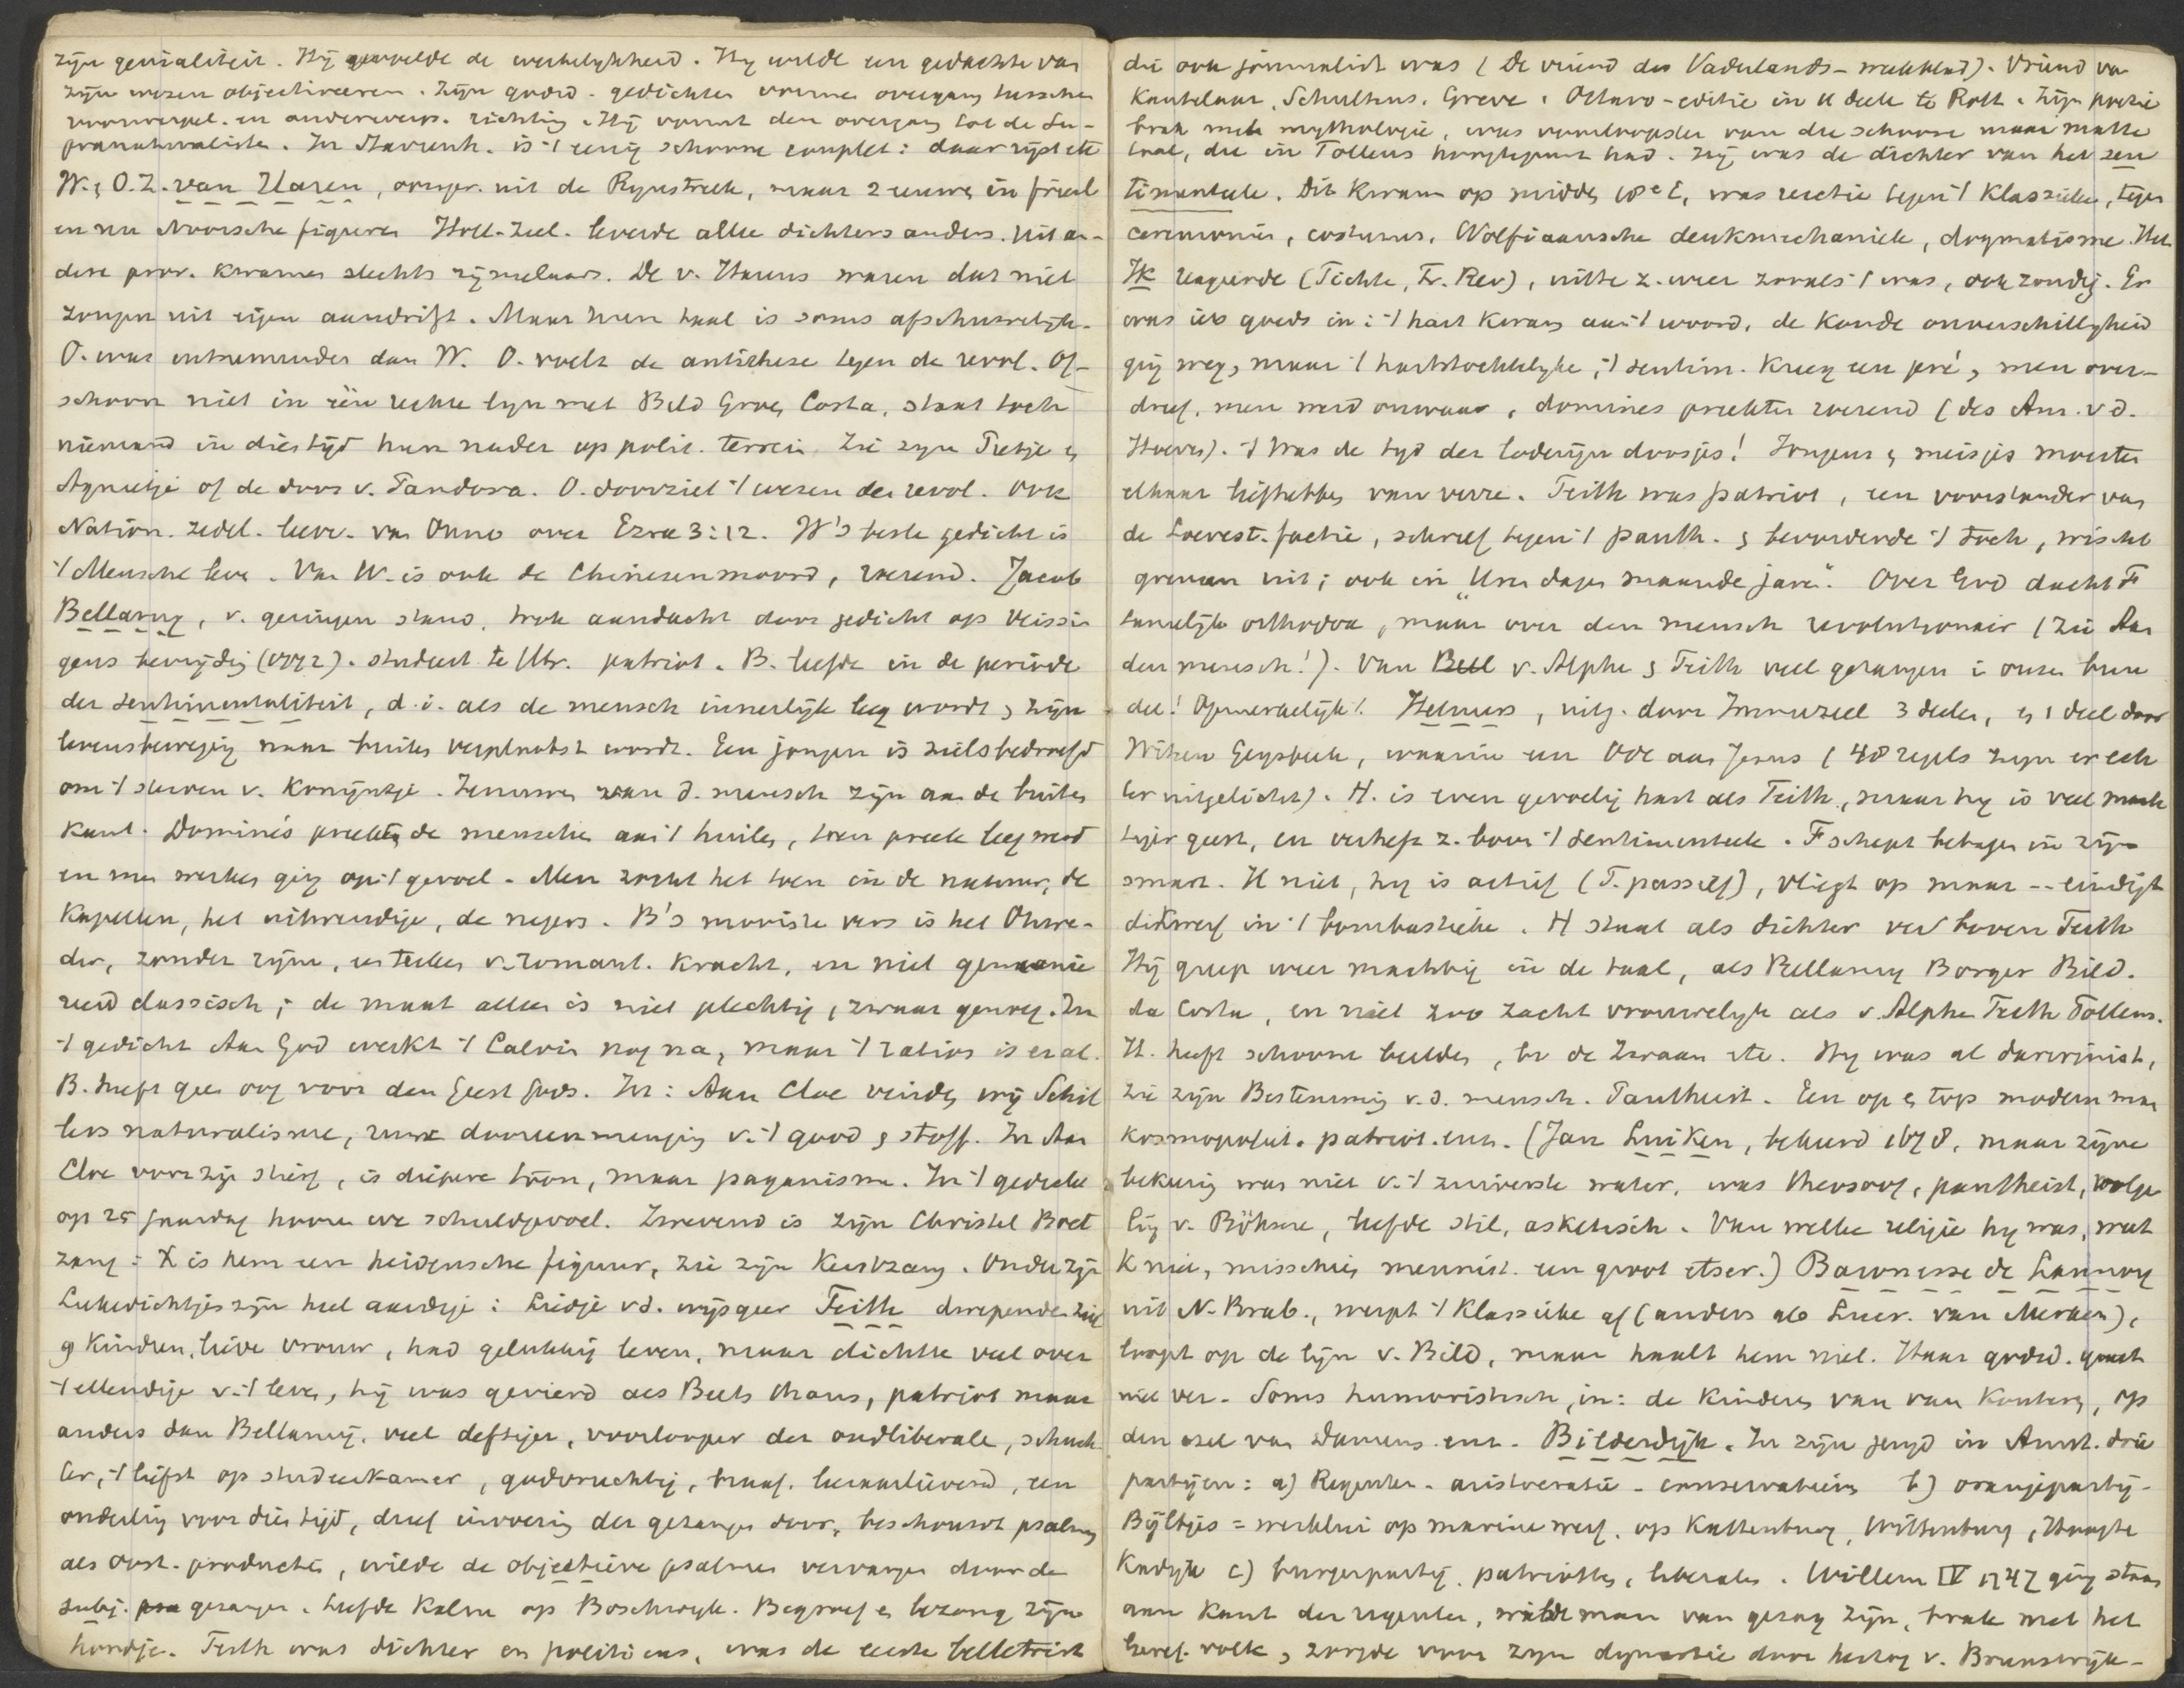 zijn genialiteit. Hij gevoelde de werkelijkheid. Hy wilde een gedachte van
zijn wezen objectiveeren. Zijn godsd. gedichten vormen overgang tusschen
voorwerpel. en onderwerp. richting. Hij vormt den overgang tot de Su-
pranaturaliste. In Stavenh. is 't eenig schoone couplet: daar rijst etc
W. & O.Z. van Haren, oorspr. uit de Rynstreek, maar 2 eeuwen in Friesl
en nu Noorsche figuren Holl-Zeel. leverde alle dichters anders. uit an-
dere prov. kwamen slechts rijmelaars. De v. Harens waren dat niet
zongen uit eigen aandrift. Maar hun taal is soms afschuwelijk.
O. was uitnemender dan W. O. voelt de antithese tegen de revol. Of-
schoon niet in één rechte lyn met Bild Groen Costa, staat toch
niemand in dies tijd hun nader op polit. terrein. Zie zyn Pietje &
Agnietje of de doos v. Pandora. O. doorziet 't wezen der revol. Ook
Nation. zedel. leer. van Onno over Ezra 3:12. W's beste gedicht is
't Mensche leve. Van W. is ook de Chineezenmoord, roerend. Jacob
Bellamy, v. geringen stand, trok aandacht door gedicht op Vlissin
gens bevrijdig (1772). student te Utr. patriot. B. leefde in de periode
der sentimentaliteit, d.i. als de mensch innerlijk leeg wordt & zijn
levensbeweging naar buiten verplaatst wordt. Een jongen is zielsbedroefd
om 't sterven v. Konijntje. Zenuwen van d. mensch zijn aan de buiten
kant. Dominé's preekten de menschen aan 't huilen, toen preek leeg werd
en men werken ging op 't gevoel. Men zocht het toen in de natuur, de
Kapellen, het uitwendige, de negers. B's mooiste vers is het Onwe-
der, zonder rijm, en teeken v. romant. kracht, en niet gemanie
reerd classisch; de maat alleen is niet plechtig, zwaar genoeg. In
't gedicht Aan God werkt 't Calvin nog na, maar 't ratios is er al.
B. heeft geen oog voor den Geest Gods. In: Aan Cloe vinden wij Schil
lers naturalisme, ruwe dooreenmenging v. 't good & stoff. In Aan
Cloe voor zij stierf, is diepere toon, maar paganisme. In 't gedicht
op 25 jaardag hooren we schuldgevoel. Zwevend is zijn Christel Boet
zang: X is hem een heidensche figuur, zie zijn Kerstzang. Onder zijn
Lukdichtjes zijn heel aardige: Liedje v.d. wijsgeer Feith diepende ziel
9 kinderen, lieve vrouw, had gelukkig leven, maar dichtte veel over
't ellendige v. 't leven, hij was gevierd als Beets thans, patriot maar
anders dan Bellamy, veel deftiger, voorlooper der oudliberale, schuch
ter, 't liefst op studeerkamer, godvruchtig, braaf. leeraarlievend, een
onderling voor dies tijd, dreef invoering der gezangen door, beschouwt psalmen
als oost. producten, wilde de objectieve psalmen vervangen door de
subj. gezangen. Leefde kalm op Boschwyk. Begroef & bezong zijn
hondje. Feith was dichter en politicus, was de eerste belletrist
die ook journalist was (De vriend des Vaderlands - weekblad). Vriend van
Kantelaar, Schultens, Greve. Octavo-editie in 11 deele te Rott. Zijn poëzie
brak met mythologie, was voorlooper van die schoone maar matte
taal, die in Tollens hoogtepunt had. Hij was de dichter van het sen
timenteele. Dit kwam op midden 18e E, was reactie tegen 't klassieke, tegen
ceremonien, costuums, Wolfiaansche denkmechaniek, dogmatisme. Het
Ik reageerde (Fichte, Fr. Rev), uitte z. weer zooals 't was, ook zondig. Er
was iets goeds in: 't hart kwam aan 't woord, de koude onverschilligheid
ging weg, maar 't hartstochtelyke, 't sentim. kreeg een pré, men over-
dreef, men werd onwaar, dominés preekten roerend (des Am. v.d.
Hoeven). 't Was de tyd der loderijn doosjes! Jongens & meisjes moesten
elkaar liefhebben van verre. Feith was patriot, een voorstander van
de Loevest. factie, schreef tegen 't panth. & bevorderde 't toch, wischt
grenzen uit; ook in "Uren dagen maanden jaren". Over God dacht F
tamelijk orthodox, maar over den mensch revolutionair (zie Aan
den mensch!). Van v. Alphe & Feith veel gezangen in onzen bun
del! Opmerkelijk!. Helmers, uitg. door Immerzeel 3 deelen, & 1 deel door
Witsen Geysbeek, waarin een Ode aan Jezus (48 regels zyn er ech
ter uitgelicht). H. is even gevoelig hart als Feith, maar hy is veel mach
tiger geest, en verheft z. boven 't sentimenteele. F schept behagen in zijn
smart. H niet, hy is actief (F. passief), vliegt op maar -- eindigt
dikwerf in 't bombastieke. H staat als dichter ver boven Feith
Hij greep weer machtig in de taal, als Bellamy Borger Bild.
da Costa, en niet zoo zacht vrouwelijk als v. Alphe Feith Tollens.
H. heeft schoone beelden, bv de Zwaan etc. Hy was al darwinist,
zie zijn Bestemming v.d. mensch. Pantheist. Een op & top modern man
kosmopoliet. patriot. enz. (Jan Luiken, bekeerd 1678, maar zijne
bekering was niet v. 't zuiverste water, was theosoof, pantheist, volge
ling v. Böhme, leefde stil, asketisch. Van welke religie hy was, weet
k niet, misschien mennist. een groot etser.) Baronesse de Lannoy
uit N-Brab., werpt 't klassieke af (anders als Lucr. van Merken),
loopt op de lijn v. Bild, maar haalt hem niet. Haar godsd. gaat
niet ver. Soms humoristisch, in: de Kinderen van van Kouters, op
den ezel van Damens enz. Bilderdijk. In zijn jeugd in Amst. drie
partijen: a) Regenten - aristocratie - conservatieven b) oranjepartij -
Bijltjes = werklui op marine werf. op Kattenburg, Wittenburg, Hoogte
Kadyk c) burgerpartij. patriotten, liberalen. Willem IV 1747 ging staan
aan kant der regenten, wilde man van gezag zijn, brak met het
Geref. volk, zorgde voor zyn dynastie door hertog v. Brunswijk-